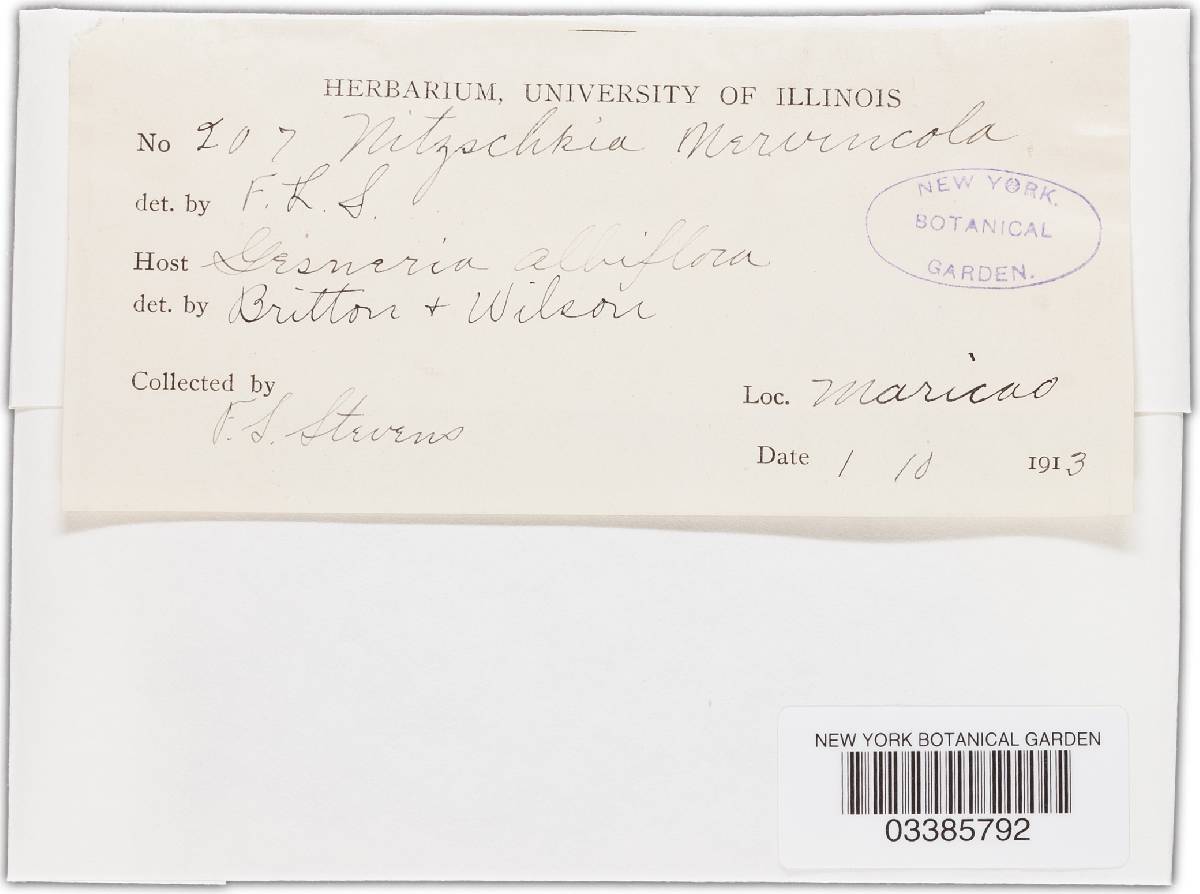 HERBARIUM, UNIVERSITY OF ILLINOIS
No 207 Nitzschkia Nervincola
det. by F. L. S.
Host Gesneria albiflora
det. by Britton + Wilson
Collected by
F. S. Stevens
Loc. Maricao
Date 1 10 1913
NEW YORK
BOTANICAL
GARDEN.
NEW YORK BOTANICAL GARDEN
03385792